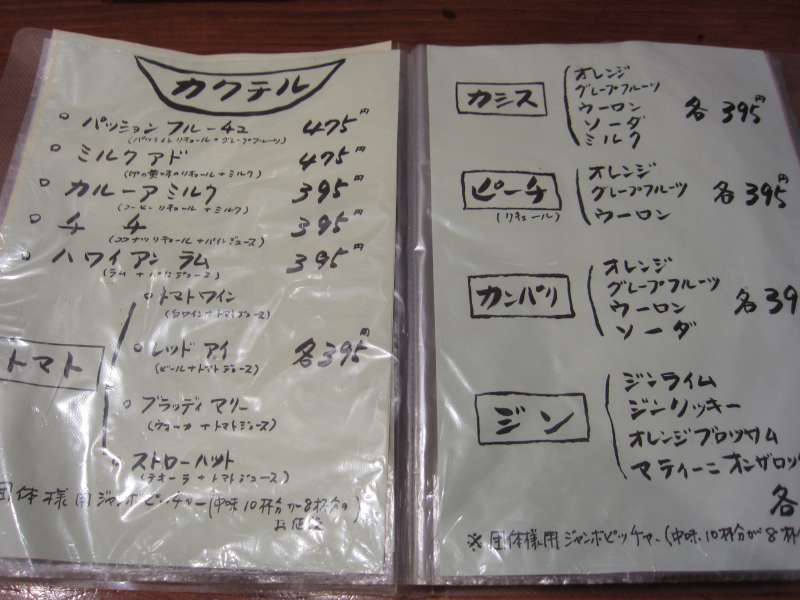 カクテル
パッション フルーチュ 475円
(パッションリキュール+グレープフルーツ)
ミルク アド 475円
(卵の黄味のリキュール+ミルク)
カルーア ミルク 395円
(コーヒーリキュール+ミルク)
チ チ 395円
(ココナツリキュール+パインジュース)
ハワイアン ラム 395円
(ラム+パインジュース)
トマト
トマトワイン
(白ワイン+トマトジュース)
レッド アイ 各395円
(ビール+トマトジュース)
ブラッディ マリー
(ウォッカ+トマトジュース)
ストローハット
(テキーラ+トマトジュース)
団体様用ジャンボピッチャー(中味10杯分が8杯分の
お値段
カシス
オレンジ
グレープフルーツ
ウーロン 各395円
ソーダ
ミルク
ピーチ
(リキュール)
オレンジ
グレープフルーツ 各395円
ウーロン
カンパリ
オレンジ
グレープフルーツ 各39
ウーロン
ソーダ
ジン
ジンライム
ジンリッキー
オレンジブロッサム
マティーニ オンザロッ
各
※団体様用ジャンボピッチャー(中味10杯分が8杯